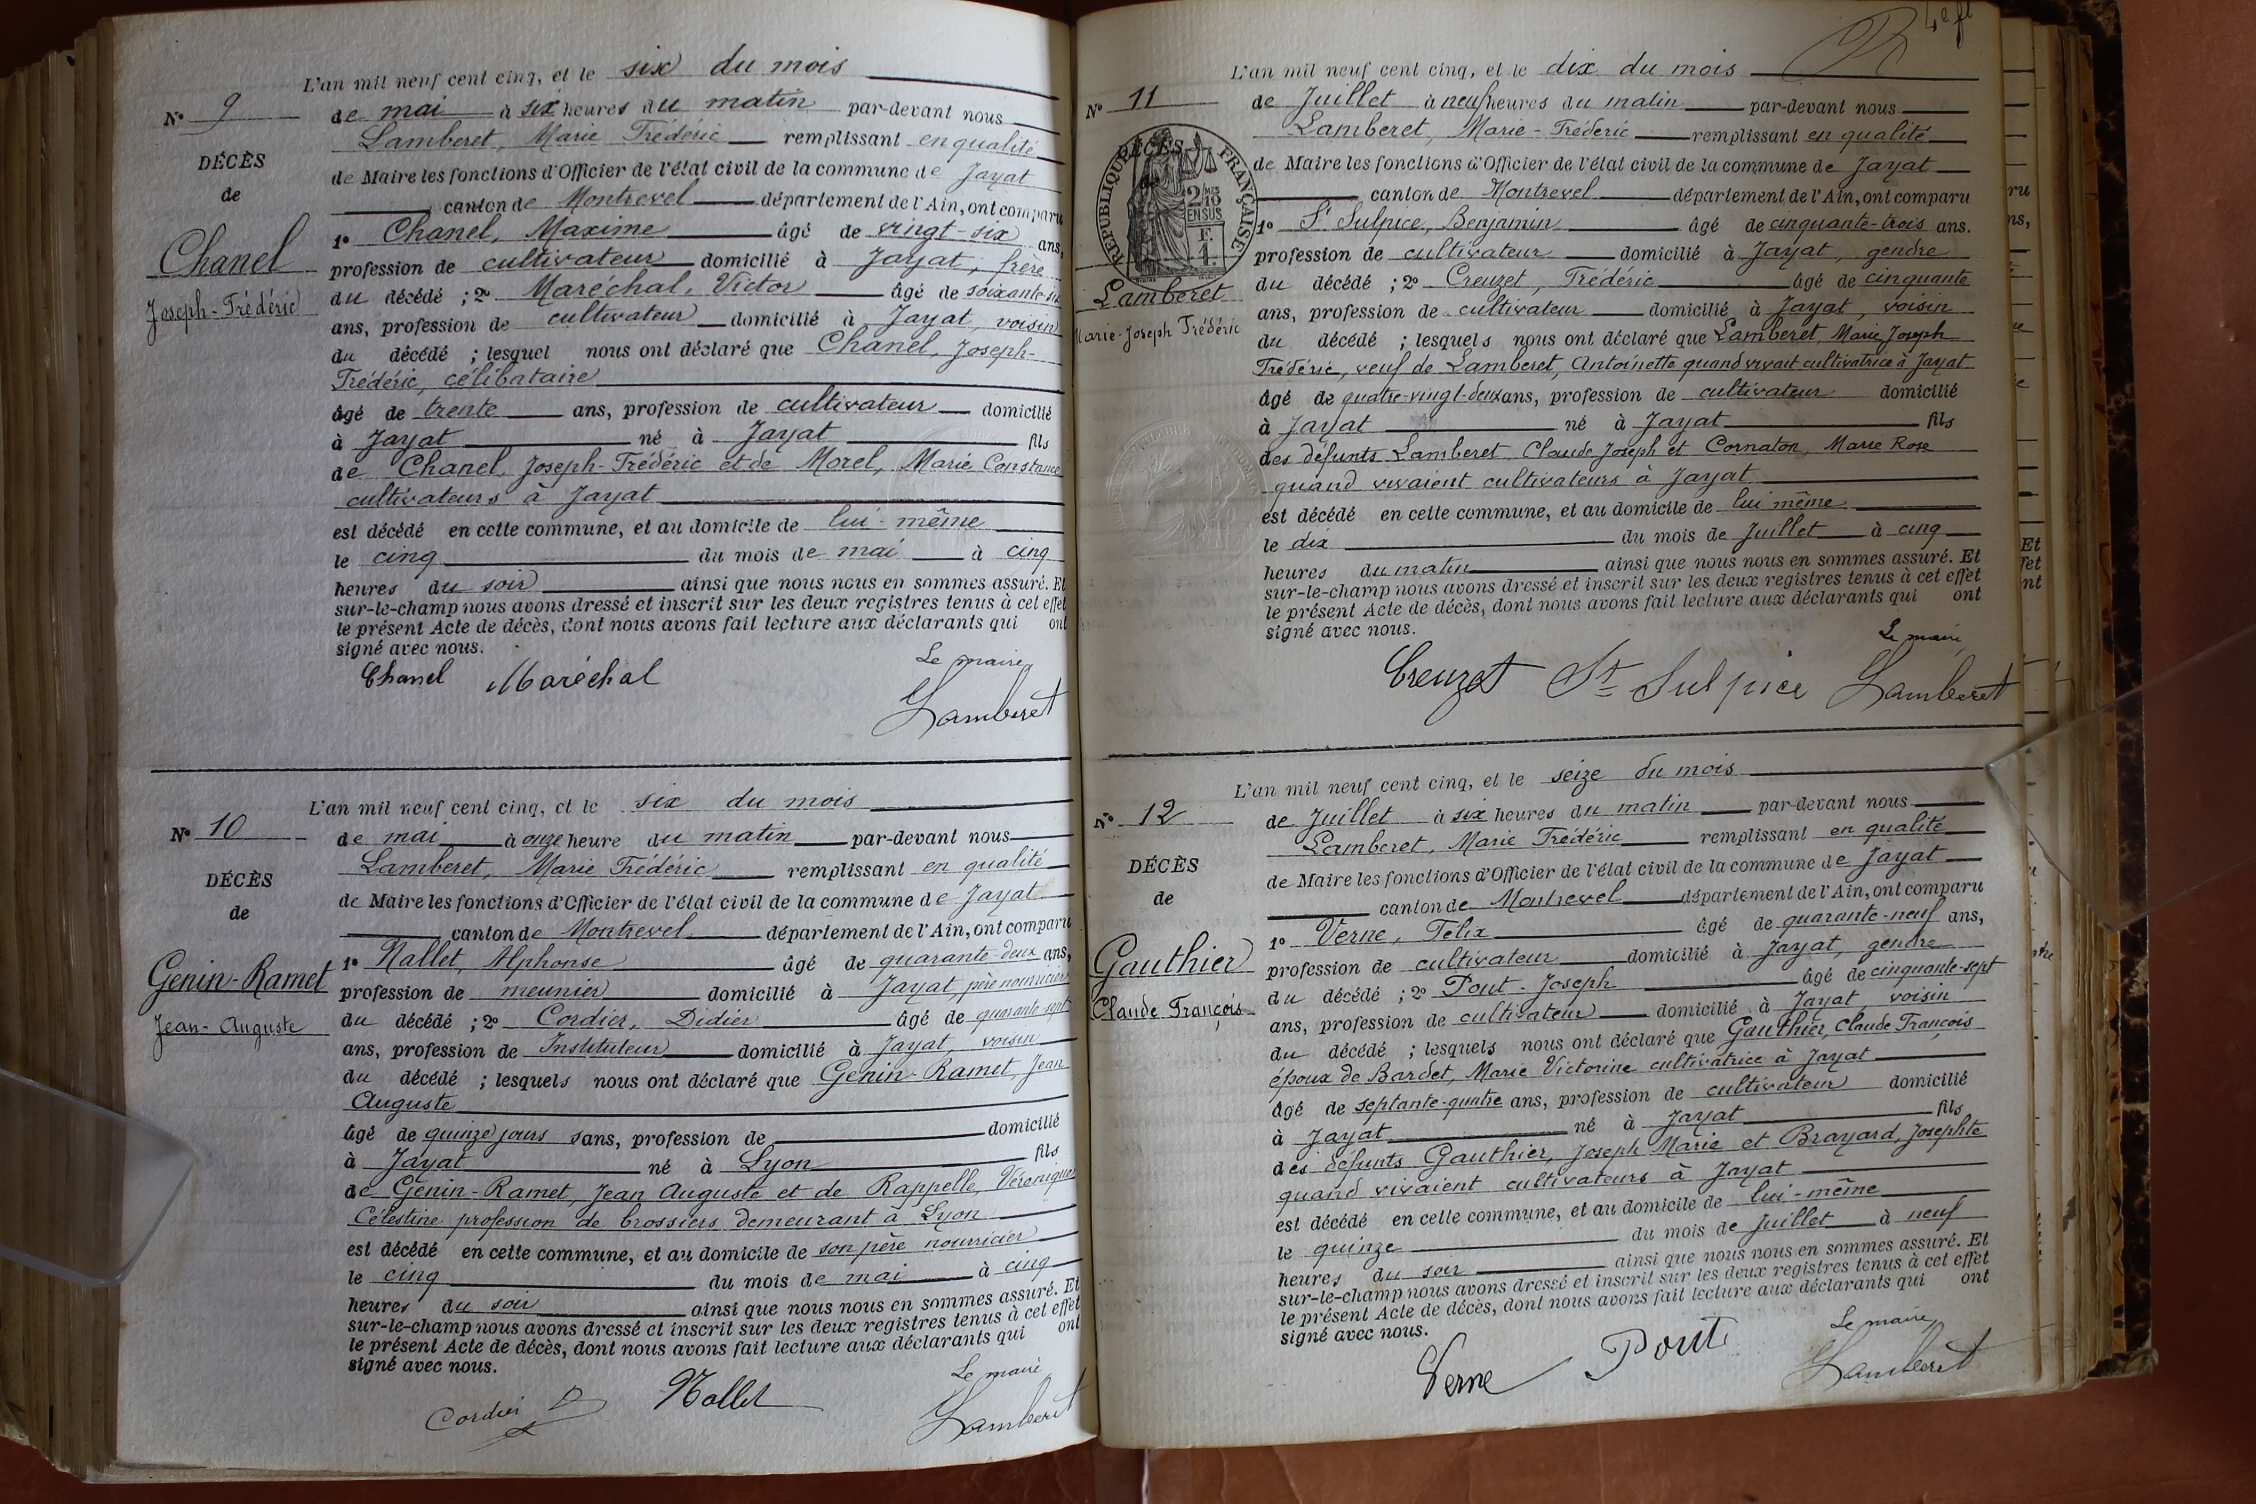 L'an mil neuf cent cinq, et le six du mois
N° 9
de mai à six heures du matin par-devant nous
Lamberet, Marie Frédéric remplissant en qualité
DÉCÈS
de Maire les fonctions d'Officier de l'état civil de la commune de Jayat
de
canton de Montrevel département de l'Ain, ont comparu
1° Chanel, Maxime âgé de vingt-six ans,
Chanel
profession de cultivateur domicilié à Jayat, frère
Joseph-Frédéric
du décédé ; 2° Maréchal, Victor âgé de soixante-six
ans, profession de cultivateur domicilié à Jayat, voisin
du décédé ; lesquel nous ont déclaré que Chanel, Joseph-
Frédéric, célibataire
âgé de trente ans, profession de cultivateur domicilié
à Jayat né à Jayat fils
de Chanel, Joseph-Frédéric et de Morel, Marie Constance
cultivateurs à Jayat
est décédé en cette commune, et au domicile de lui-même
le cinq du mois de mai à cinq
heures du soir ainsi que nous nous en sommes assuré. Et
sur-le-champ nous avons dressé et inscrit sur les deux registres tenus à cet effet
le présent Acte de décès, dont nous avons fait lecture aux déclarants qui ont
signé avec nous.
Le maire
Chanel Maréchal Lamberet
L'an mil neuf cent cinq, et le six du mois
N° 10
de mai à onze heure du matin par-devant nous
Lamberet, Marie Frédéric remplissant en qualité
DÉCÈS
de Maire les fonctions d'Officier de l'état civil de la commune de Jayat
de
canton de Montrevel département de l'Ain, ont comparu
1° Nallet, Alphonse âgé de quarante-deux ans,
Genin-Ramet
profession de meunier domicilié à Jayat, père nourricier
Jean-Auguste
du décédé ; 2° Cordier, Didier âgé de quarante-sept
ans, profession de Instituteur domicilié à Jayat, voisin
du décédé ; lesquels nous ont déclaré que Genin-Ramet Jean
Auguste
âgé de quinze jours sans, profession de domicilié
à Jayat né à Lyon fils
de Genin-Ramet, Jean Auguste et de Rappelle, Véronique
Célestine profession de brossiers demeurant à Lyon
est décédé en cette commune, et au domicile de son père nourricier
le cinq du mois de mai à cinq
heures du soir ainsi que nous nous en sommes assuré. Et
sur-le-champ nous avons dressé et inscrit sur les deux registres tenus à cet effet
le présent Acte de décès, dont nous avons fait lecture aux déclarants qui ont
signé avec nous.
Le maire
Cordier D Nallet Lamberet
L'an mil neuf cent cinq, et le dix du mois
N° 11
de Juillet à neuf heures du matin par-devant nous
Lamberet, Marie-Fréderic remplissant en qualité
DÉCÈS
RÉPUBLIQUE FRANÇAISE
2 MES
10
EN SUS
F.
1.
de Maire les fonctions d'Officier de l'état civil de la commune de Jayat
canton de Montrevel département de l'Ain, ont comparu
1° St Sulpice, Benjamin âgé de cinquante-trois ans.
profession de cultivateur domicilié à Jayat, gendre
du décédé ; 2° Creuzet, Frédéric âgé de cinquante
Lamberet
ans, profession de cultivateur domicilié à Jayat, voisin
Marie-Joseph Frédéric
du décédé ; lesquels nous ont déclaré que Lamberet, Marie Joseph
Frédéric, veuf de Lamberet, Antoinette quand vivait cultivatrice à Jayat
âgé de quatre-vingt-deux ans, profession de cultivateur domicilié
à Jayat né à Jayat fils
des défunts Lamberet Claude Joseph et Cornaton, Marie Rose
quand vivaient cultivateurs à Jayat
est décédé en cette commune, et au domicile de lui même
le dix du mois de Juillet à cinq
heures du matin ainsi que nous nous en sommes assuré. Et
sur-le-champ nous avons dressé et inscrit sur les deux registres tenus à cet effet
le présent Acte de décès, dont nous avons fait lecture aux déclarants qui ont
signé avec nous.
Le maire
Creuzet St Sulpice Lamberet
L'an mil neuf cent cinq, et le seize du mois
N° 12
de Juillet à six heures du matin par-devant nous
Lamberet, Marie Frédéric remplissant en qualité
DÉCÈS
de Maire les fonctions d'Officier de l'état civil de la commune de Jayat
de
canton de Montrevel département de l'Ain, ont comparu
1° Verne, Félix âgé de quarante-neuf ans,
Gauthier
profession de cultivateur domicilié à Jayat, gendre
Claude François
du décédé ; 2° Pont-Joseph âgé de cinquante-sept
ans, profession de cultivateur domicilié à Jayat, voisin
du décédé ; lesquels nous ont déclaré que Gauthier, Claude François
époux de Bardet, Marie Victorine cultivatrice à Jayat
âgé de septante-quatre ans, profession de cultivateur domicilié
à Jayat né à Jayat fils
des défunts Gauthier, Joseph Marie et Brayard, Josephte
quand vivaient cultivateurs à Jayat
est décédé en cette commune, et au domicile de lui-même
le quinze du mois de Juillet à neuf
heures du soir ainsi que nous nous en sommes assuré. Et
sur-le-champ nous avons dressé et inscrit sur les deux registres tenus à cet effet
le présent Acte de décès, dont nous avons fait lecture aux déclarants qui ont
signé avec nous.
Le maire
Verne Pont Lamberet